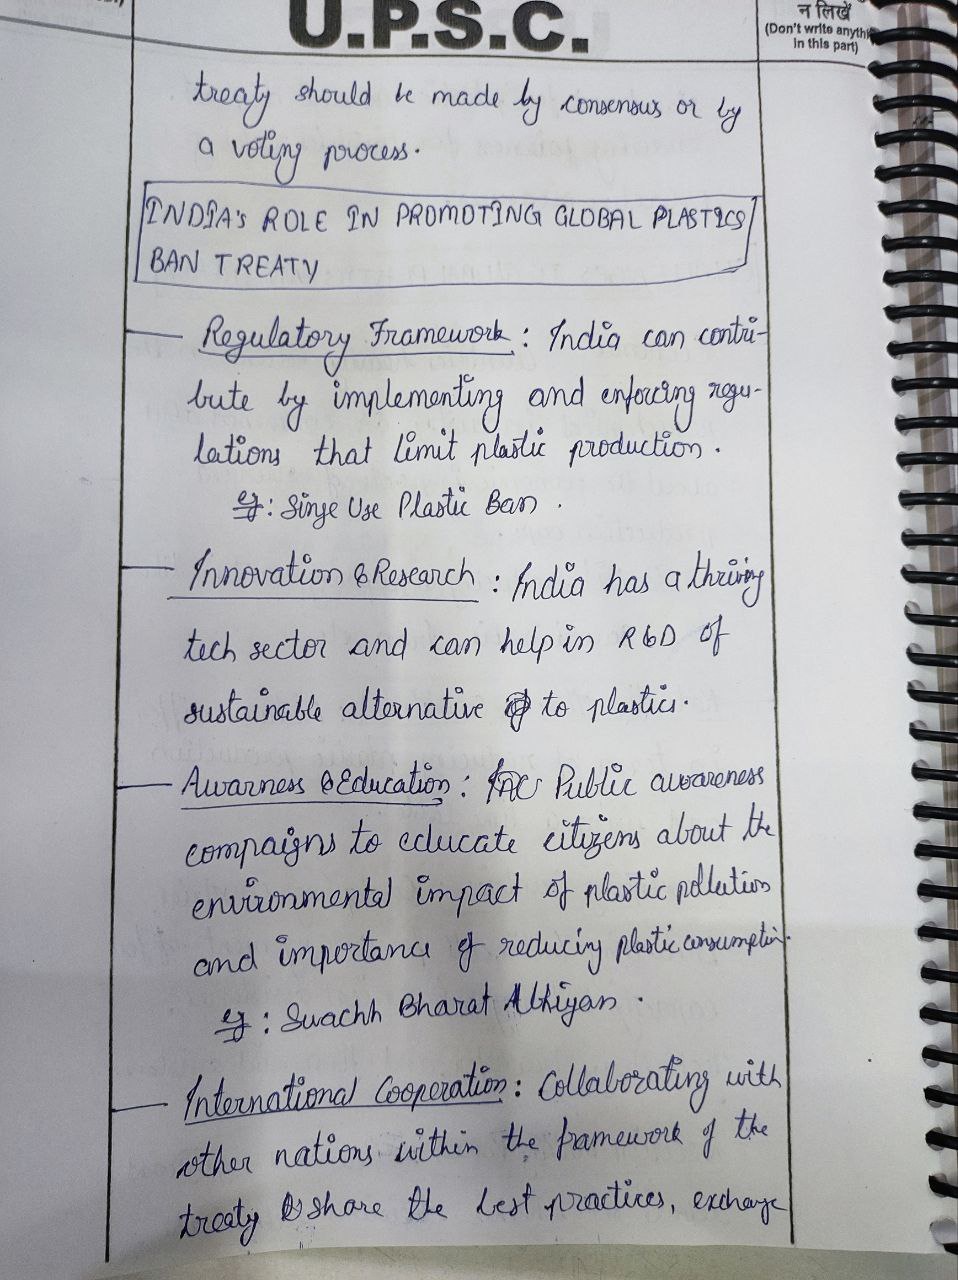 U.P.S.C.
न लिखें
(Don't write anythi
in this part)
treaty should be made by consensus or by
a voting process.
INDIA's ROLE IN PROMOTING GLOBAL PLASTICS
BAN TREATY
Regulatory Framework : India can contri-
bute by implementing and enforcing regu-
lations that limit plastic production.
eg : Singe Use Plastic Ban.
Innovation & Research : India has a thriving
tech sector and can help in R&D of
sustainable alternative to plastics.
Awarness & Education : Public awareness
campaigns to educate citizens about the
environmental impact of plastic pollution
and importance of reducing plastic consumption.
eg : Swachh Bharat Abhiyan.
International Cooperation : Collaborating with
other nations within the framework of the
treaty to share the best practices, exchange